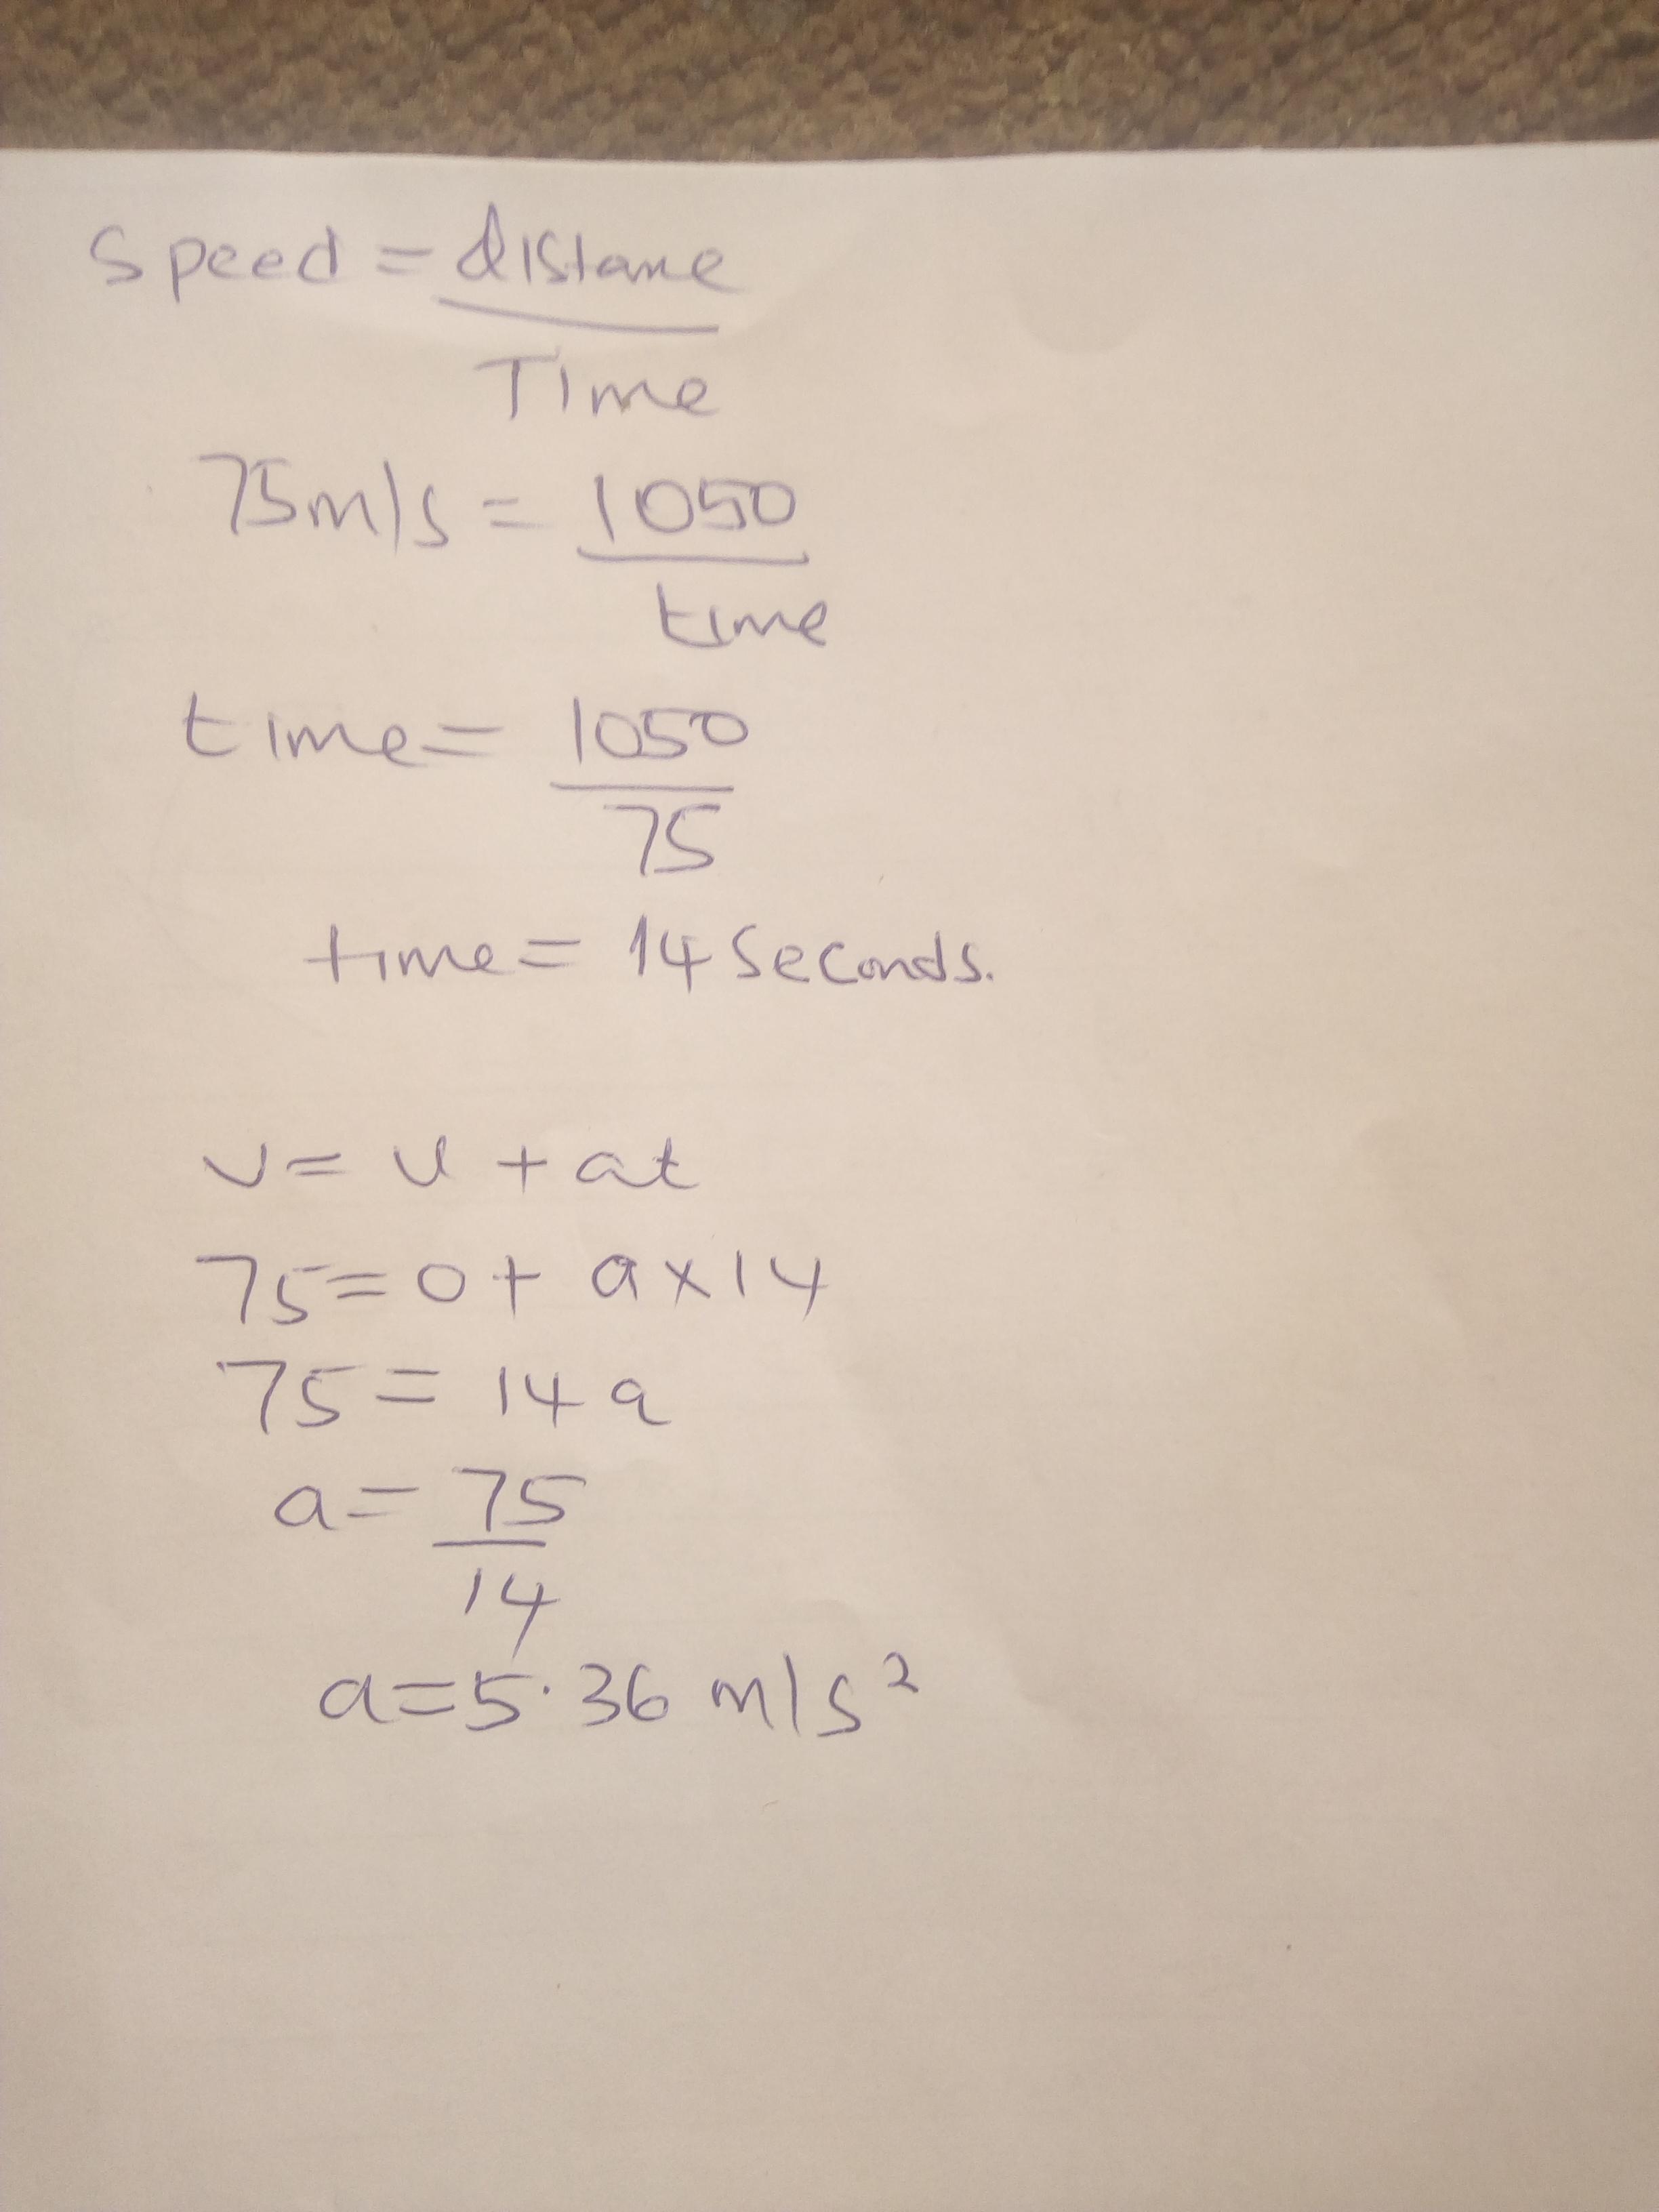 Speed = distance
Time
75m/s = 1050
time
time = 1050
75
time = 14 seconds.
v = u + at
75 = 0 + a x 14
75 = 14a
a = 75
14
a = 5.36 m/s²